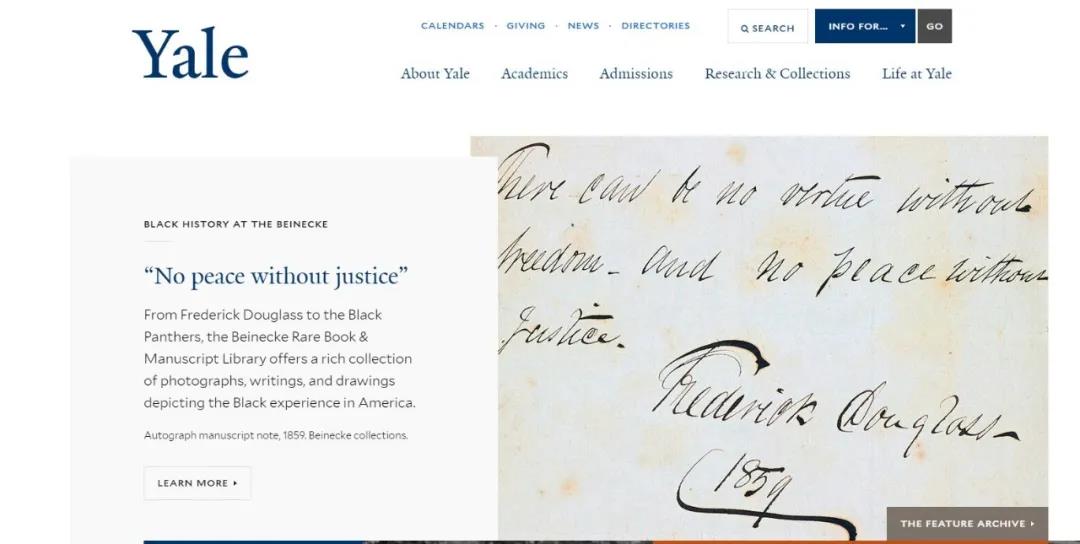 Yale
CALENDARS · GIVING · NEWS · DIRECTORIES
SEARCH
INFO FOR...
GO
About Yale
Academics
Admissions
Research & Collections
Life at Yale
BLACK HISTORY AT THE BEINECKE
“No peace without justice”
From Frederick Douglass to the Black
Panthers, the Beinecke Rare Book &
Manuscript Library offers a rich collection
of photographs, writings, and drawings
depicting the Black experience in America.
Autograph manuscript note, 1859. Beinecke collections.
LEARN MORE
There can be no virtue without
freedom - and no peace without
Justice.
Frederick Douglass
1859
THE FEATURE ARCHIVE